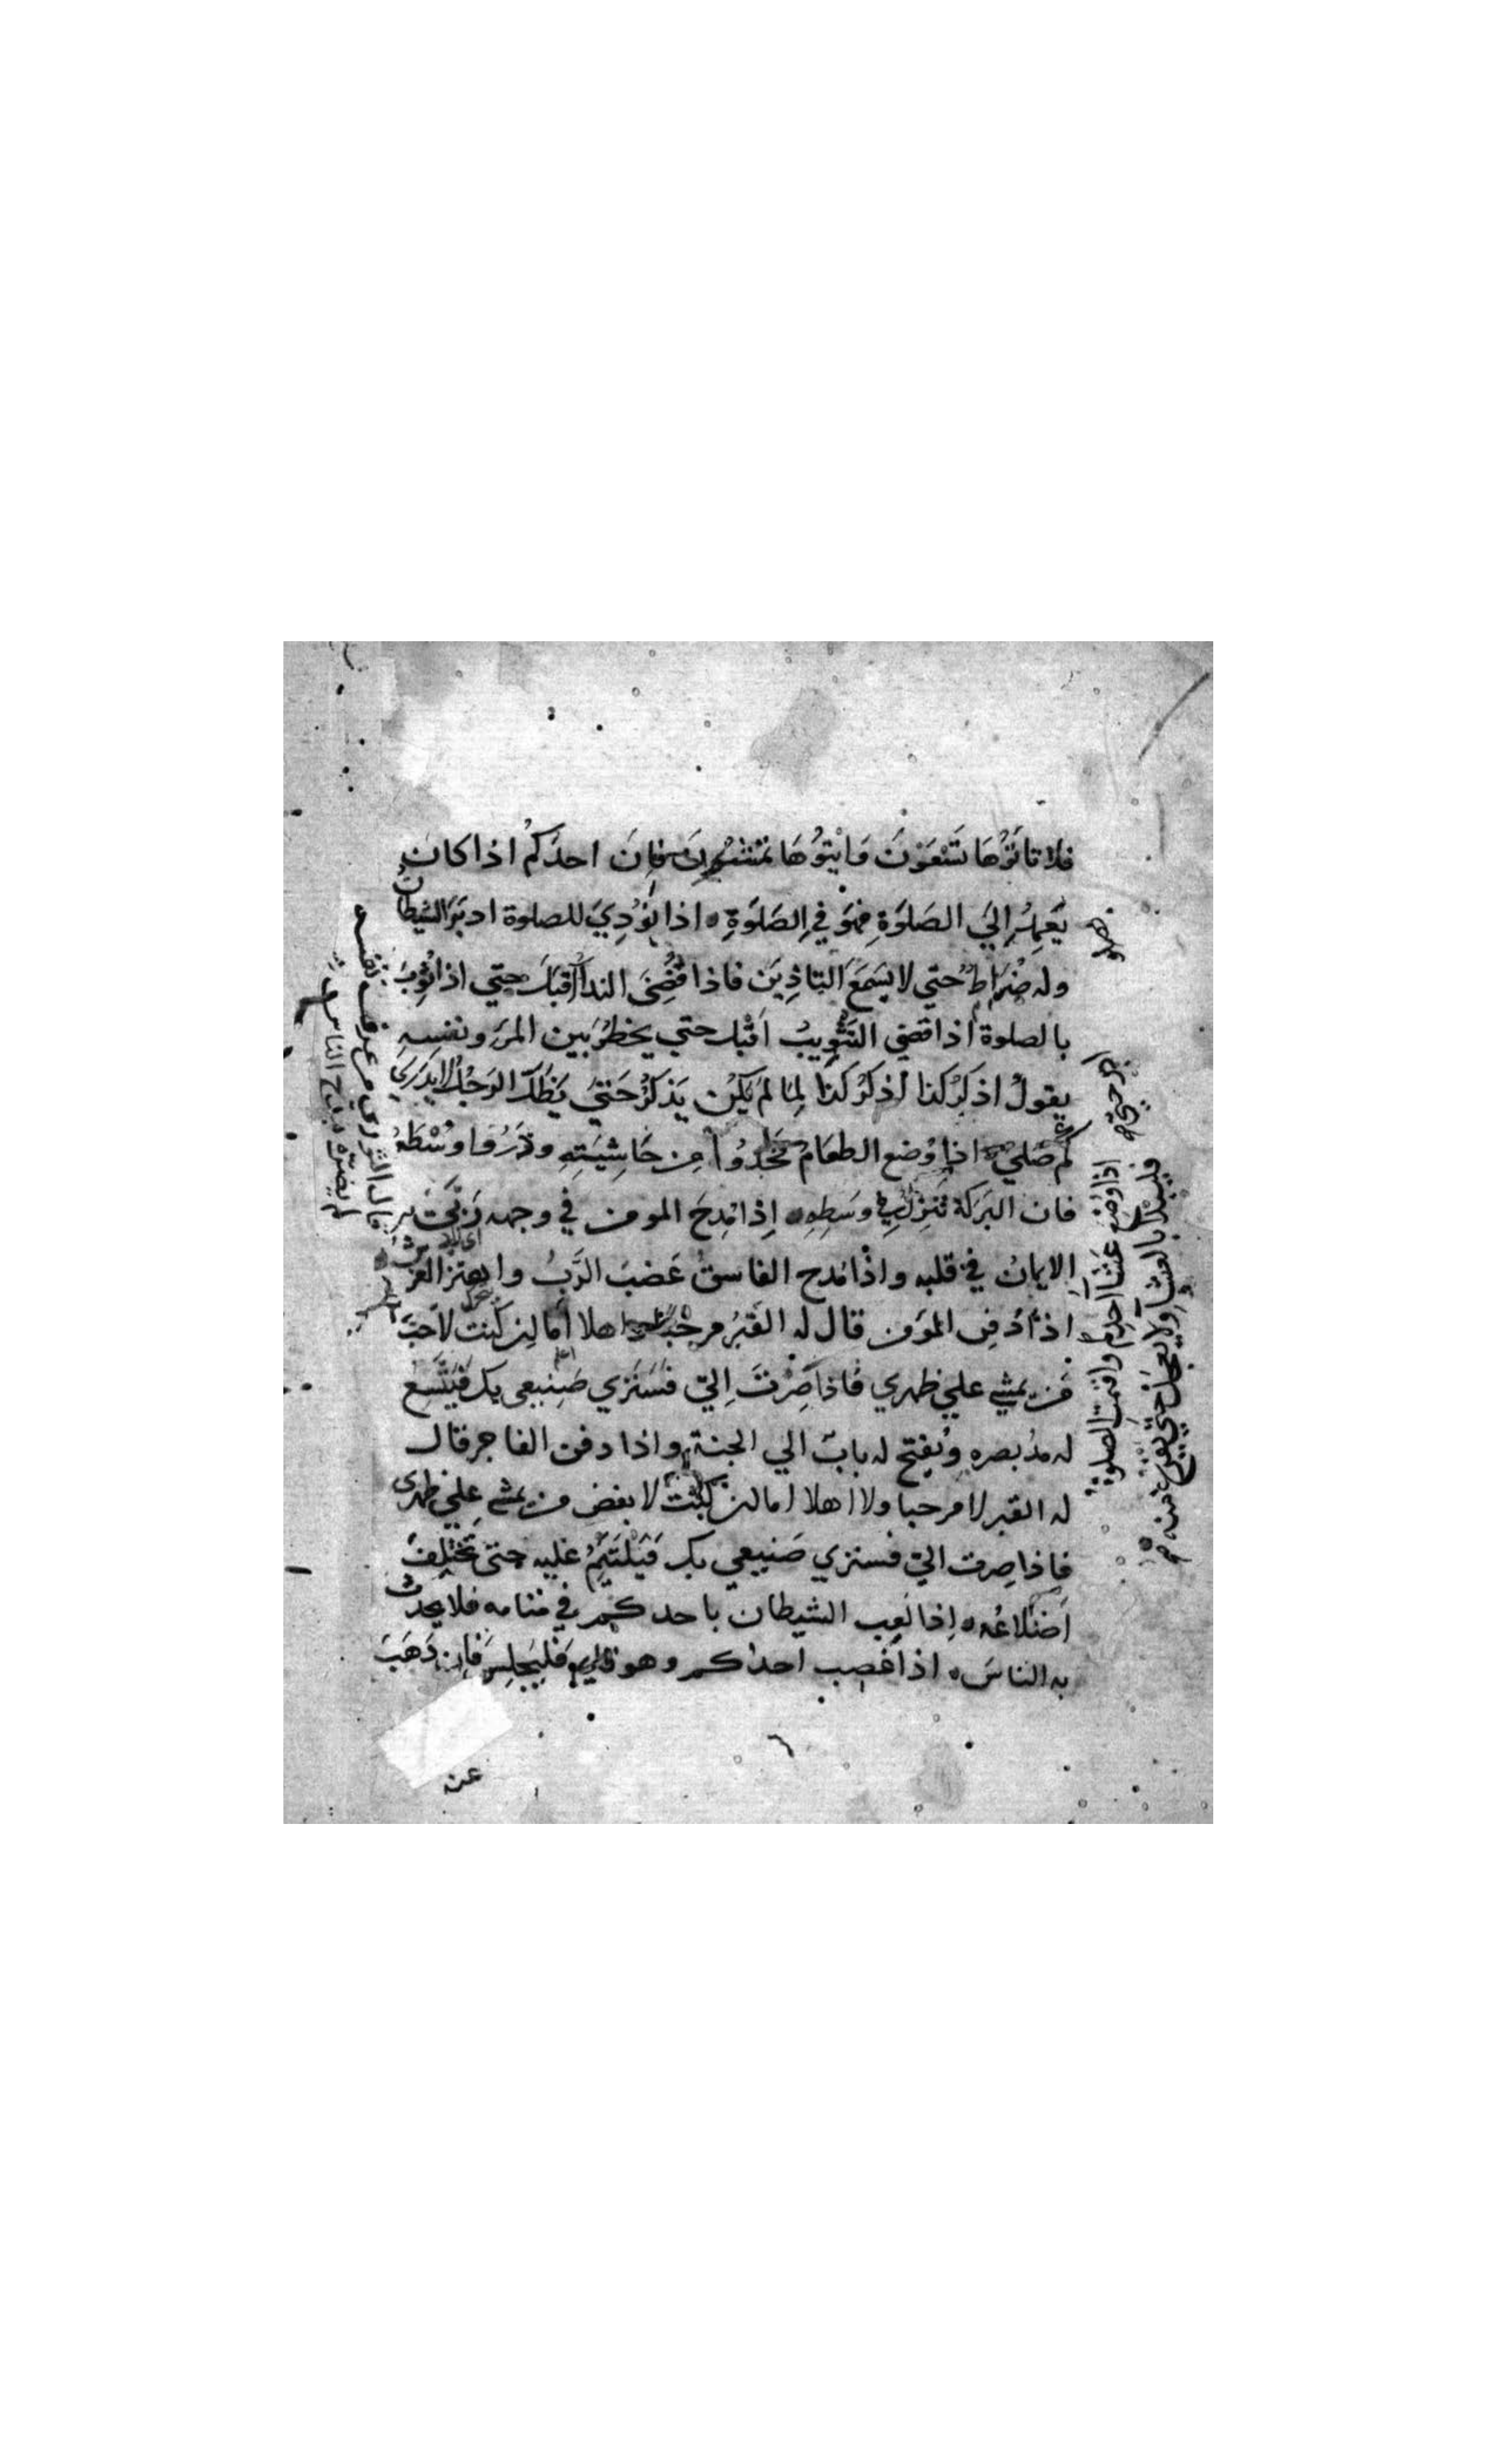 فلا تاتُوْهَا تَسْعَوْنَ وَايْتُوْهَا تَمْشُوْنَ فاِنَ احدَكُمْ اذا كان
يَعْمِدُ اِلَى الصَلوَةِ فهَوَ في الصَلوَةِ ه اذا نُوْدِيَ للصلوة ادبَرَ الشيطانُ
وله ضُرَاطٌ حتي لا يسَمَعَ التاذِيَن فاذا قُضِيَ الندآُ اَقبَلَ حتي اذا ثُوِّبَ
بالصلوة اذا قضي التَثْوِيبُ اَقْبل حتي يخطُرَ بين المرَء ونفسِهِ
يقولُ اذكُرْ كذا اُذكُرْ كذا لِمَا لمَ يكُن يَذكُرُ حَتيَ يَظَلَّ الرَجُلُ لا يَدرَي
كَم صَلي ه اذا وُضع الطعَامُ فخُذُوا مِن حَاشِيَتِهِ وذَرُوا وسْطَهُ
فان البَرَكةَ تَنِزلُ في وسَطِهِ ه إِذا مُدِحَ المومن في وجهه رَبَي
الايمانُ في قلبه واذْا مُدح الفاسقُ غَضبَ الرَّبُ واهتز العرش
اذا دُفِن المؤمن قال له القَبْرُ مرحْبًا واهلا اَمَا لِن كُنت لاَحَبَّ
مَن يمشي علي ظهري فاذا صِرْتَ اِليّ فَسَتَري صَنِيعي بِك فَيَتَّسِعُ
له مدُ بصره وُيفتح له بابٌ الي الجنة واذا دفن الفاجر قال
له القبر لا مرحبا ولا اهلا اما لن كنت لابغض من يمشي علي ظهري
فاذا صِرت اليّ فستري صَنيعي بك فَيَلْتَئِمُ عليه حتى تَختلِفَ
اَضلاعُه ه إِذا لَعِب الشيطان باحدكم في منامه فلا يحدث
به الناسَ ه اذا غضِب احدُكم وهو قايم فَليَجلِسَ فاِن ذَهَبَ
عنه
اذا وُضع عَشَآ احدكم واقيمت الصلوة
فليبدا بالعشآ ولا يعجل حتي يفرغ منه
قال الثوري من عرف نفسه
لم يضره مدح الناس